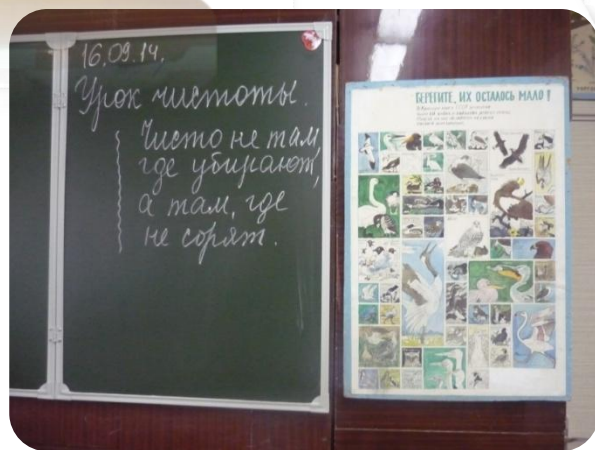 16.09.14.
Урок чистоты.
Чисто не там,
где убирают,
а там, где
не сорят.
БЕРЕГИТЕ, ИХ ОСТАЛОСЬ МАЛО!